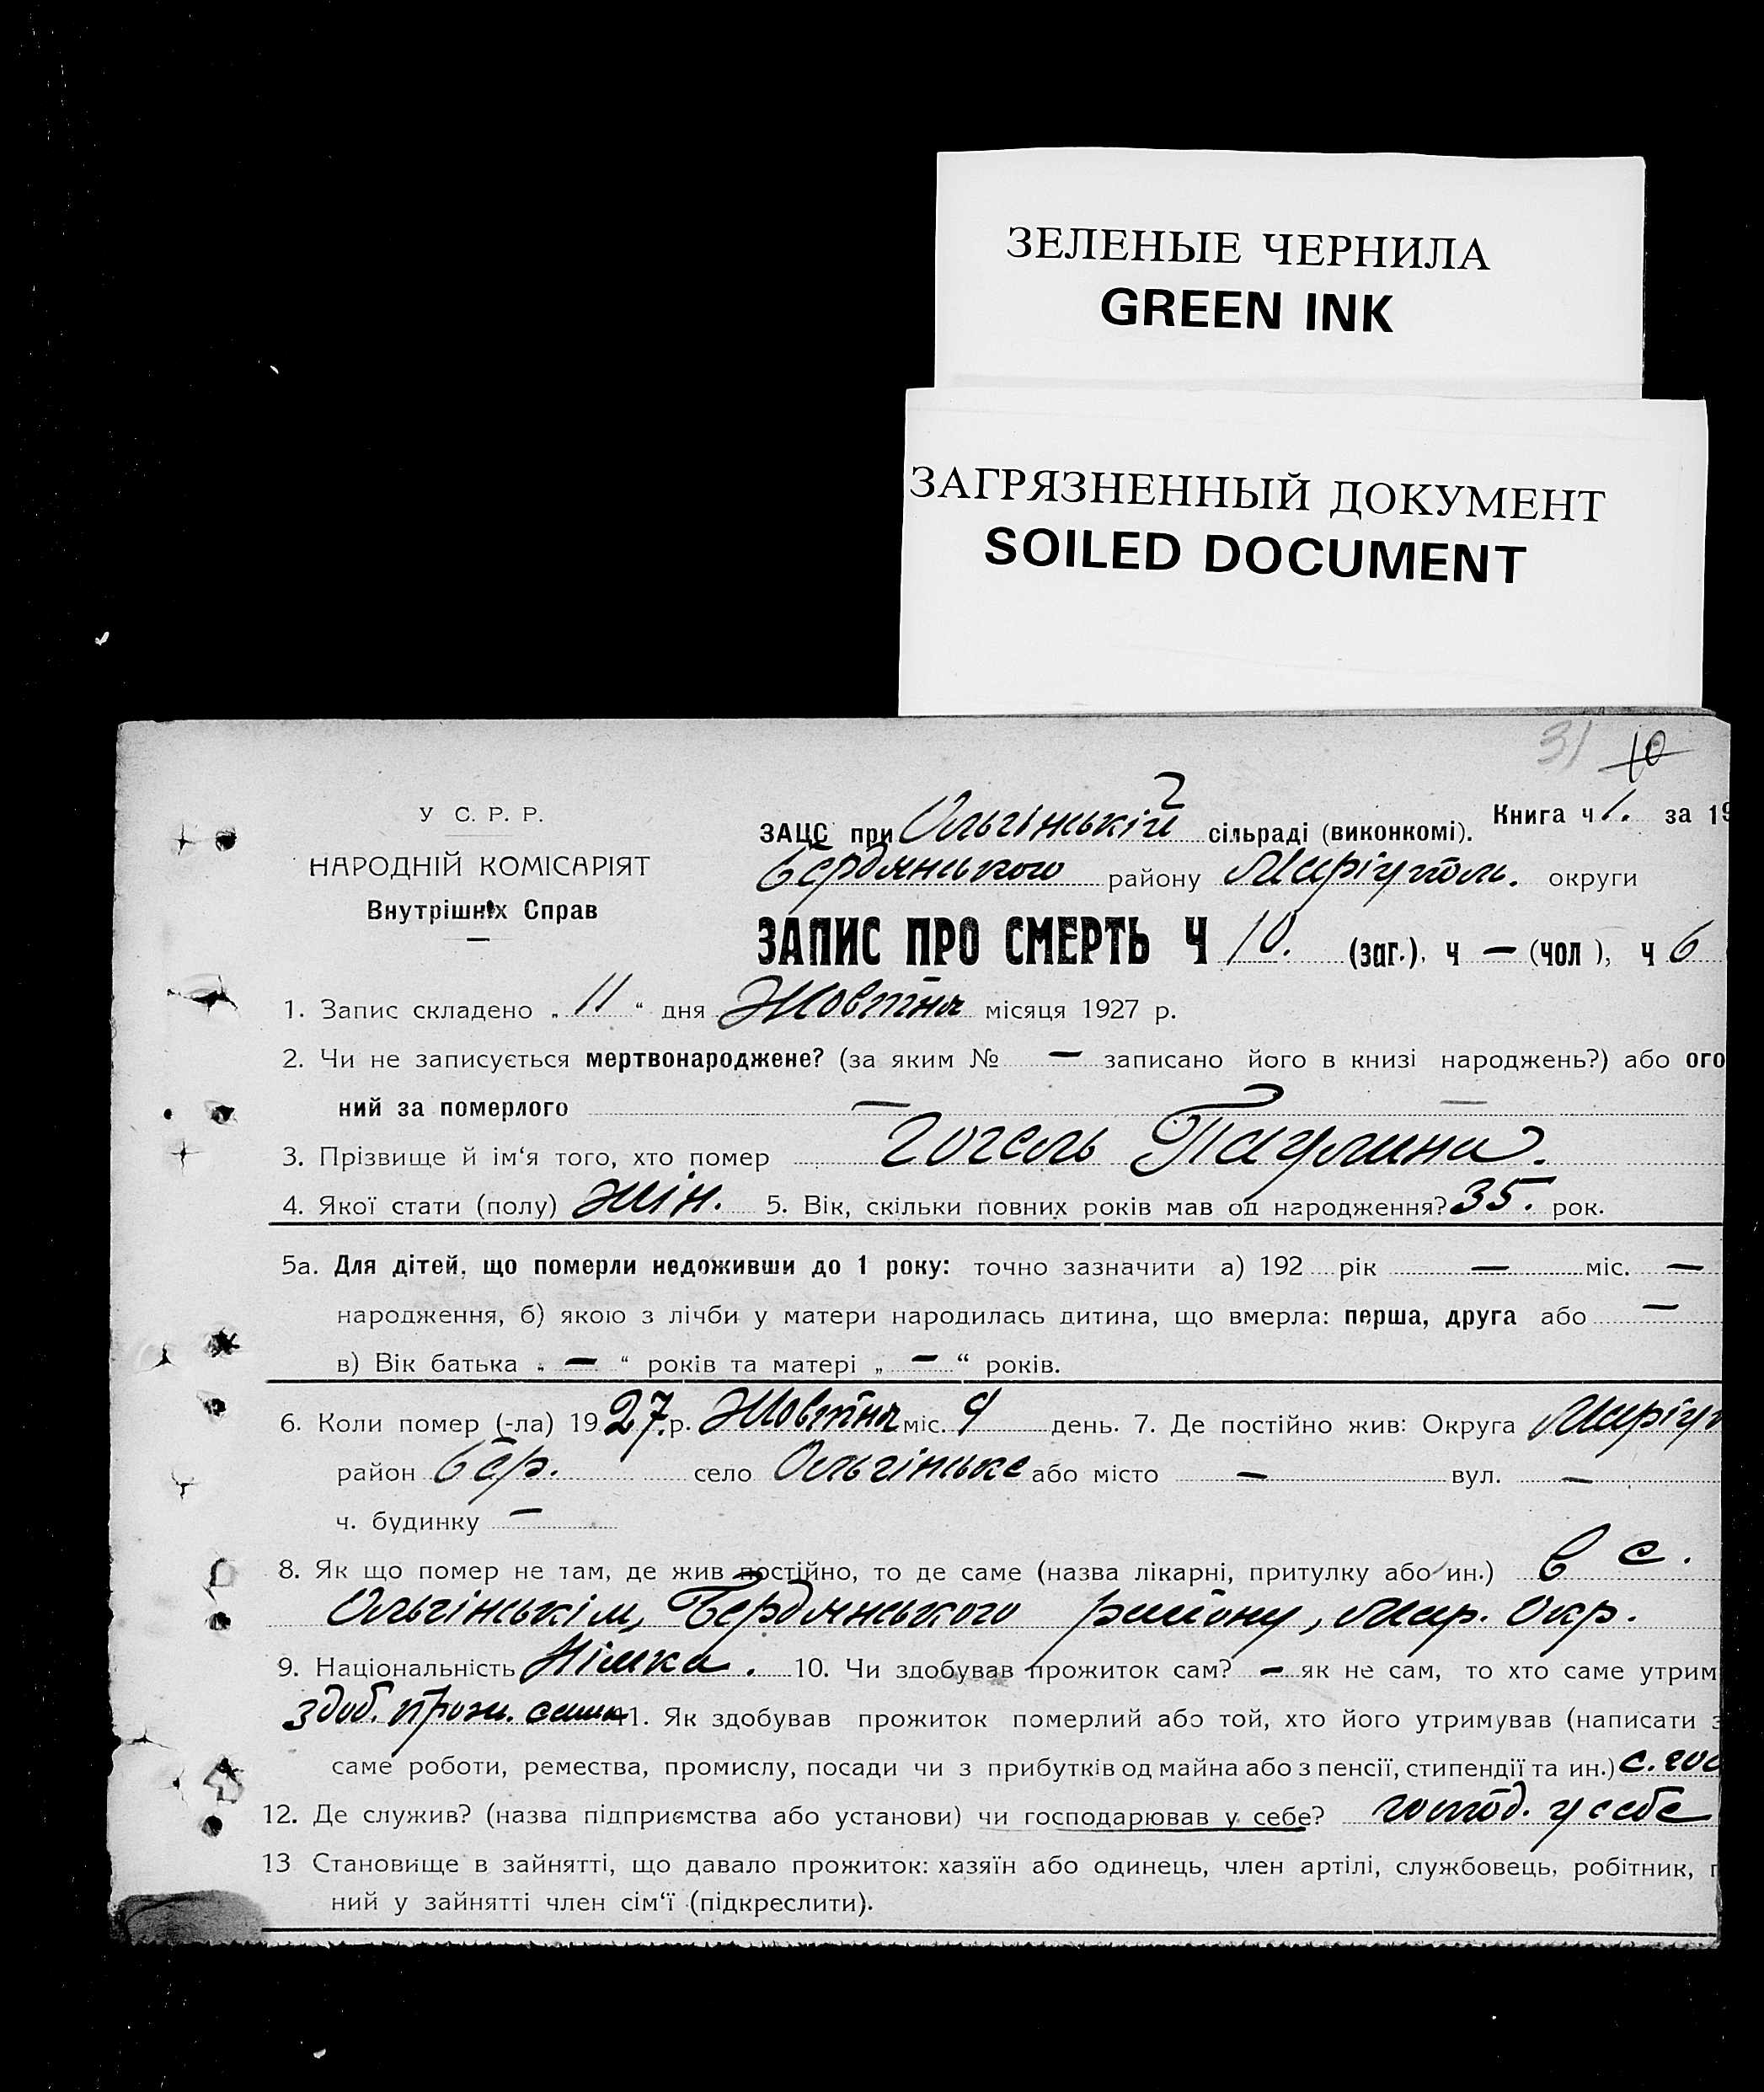 ЗЕЛЕНЫЕ ЧЕРНИЛА
GREEN INK
ЗАГРЯЗНЕННЫЙ ДОКУМЕНТ
SOILED DOCUMENT
31 10
У С. Р. Р.
НАРОДНІЙ КОМІСАРІЯТ
Внутрішніх Справ
ЗАЦС при Ольгінській сільраді (виконкомі). Книга ч 1. за 19
Бердянського району Маріупол. округи
ЗАПИС ПРО СМЕРТЬ Ч 10. (заг.), ч — (чол), ч 6
1. Запис складено „ 11 “ дня Жовтня місяця 1927 р.
2. Чи не записується мертвонароджене? (за яким № — записано його в книзі народжень?) або ого
ний за померлого — —
3. Прізвище й ім‘я того, хто помер Гогель Пауліна.
4. Якої стати (полу) жін. 5. Вік, скільки повних років мав од народження? 35. рок.
5а. Для дітей, що померли недоживши до 1 року: точно зазначити а) 192 рік — міс. —
народження, б) якою з лічби у матери народилась дитина, що вмерла: перша, друга або —
в) Вік батька „ — “ років та матері „ — “ років.
6. Коли помер (-ла) 1927. р. Жовтня міс. 9 день. 7. Де постійно жив: Округа Маріуп
район Бер. село Ольгінське або місто — вул. —
ч. будинку —
8. Як що помер не там, де жив постійно, то де саме (назва лікарні, притулку або ин.) в с.
Ольгінськім, Бердянського району, Мар. Окр.
9. Національність Німка. 10. Чи здобував прожиток сам? — як не сам, то хто саме утрим
здоб. прож. сама 11. Як здобував прожиток померлий або той, хто його утримував (написати з
саме роботи, ремества, промислу, посади чи з прибутків од майна або з пенсії, стипендії та ин.) с. гос
12. Де служив? (назва підприємства або установи) чи господарював у себе? господ. у себе
13 Становище в зайнятті, що давало прожиток: хазяїн або одинець, член артілі, службовець, робітник, п
ний у зайнятті член сім‘ї (підкреслити).